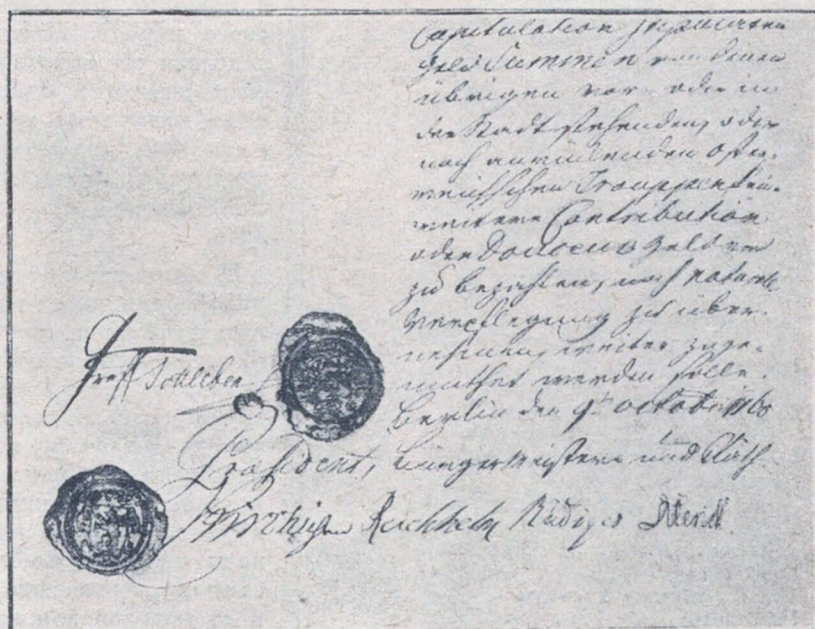 Capitulation stipulirten
Geld Summen von denen
übrigen vor oder in
der Stadt stehenden, oder
noch anrückenden Öster-
reichschen Trouppen kein
weitere Contribution
oder Douceur Gelder
zu bezahlen, noch
Verpflegung zu über-
nehmen, weiter zuge-
muthet werden solle.
Berlin den 9t October 1760
Präsident, Bürgermeistere und Rath
Kircheisen Reichhelm Rüdiger